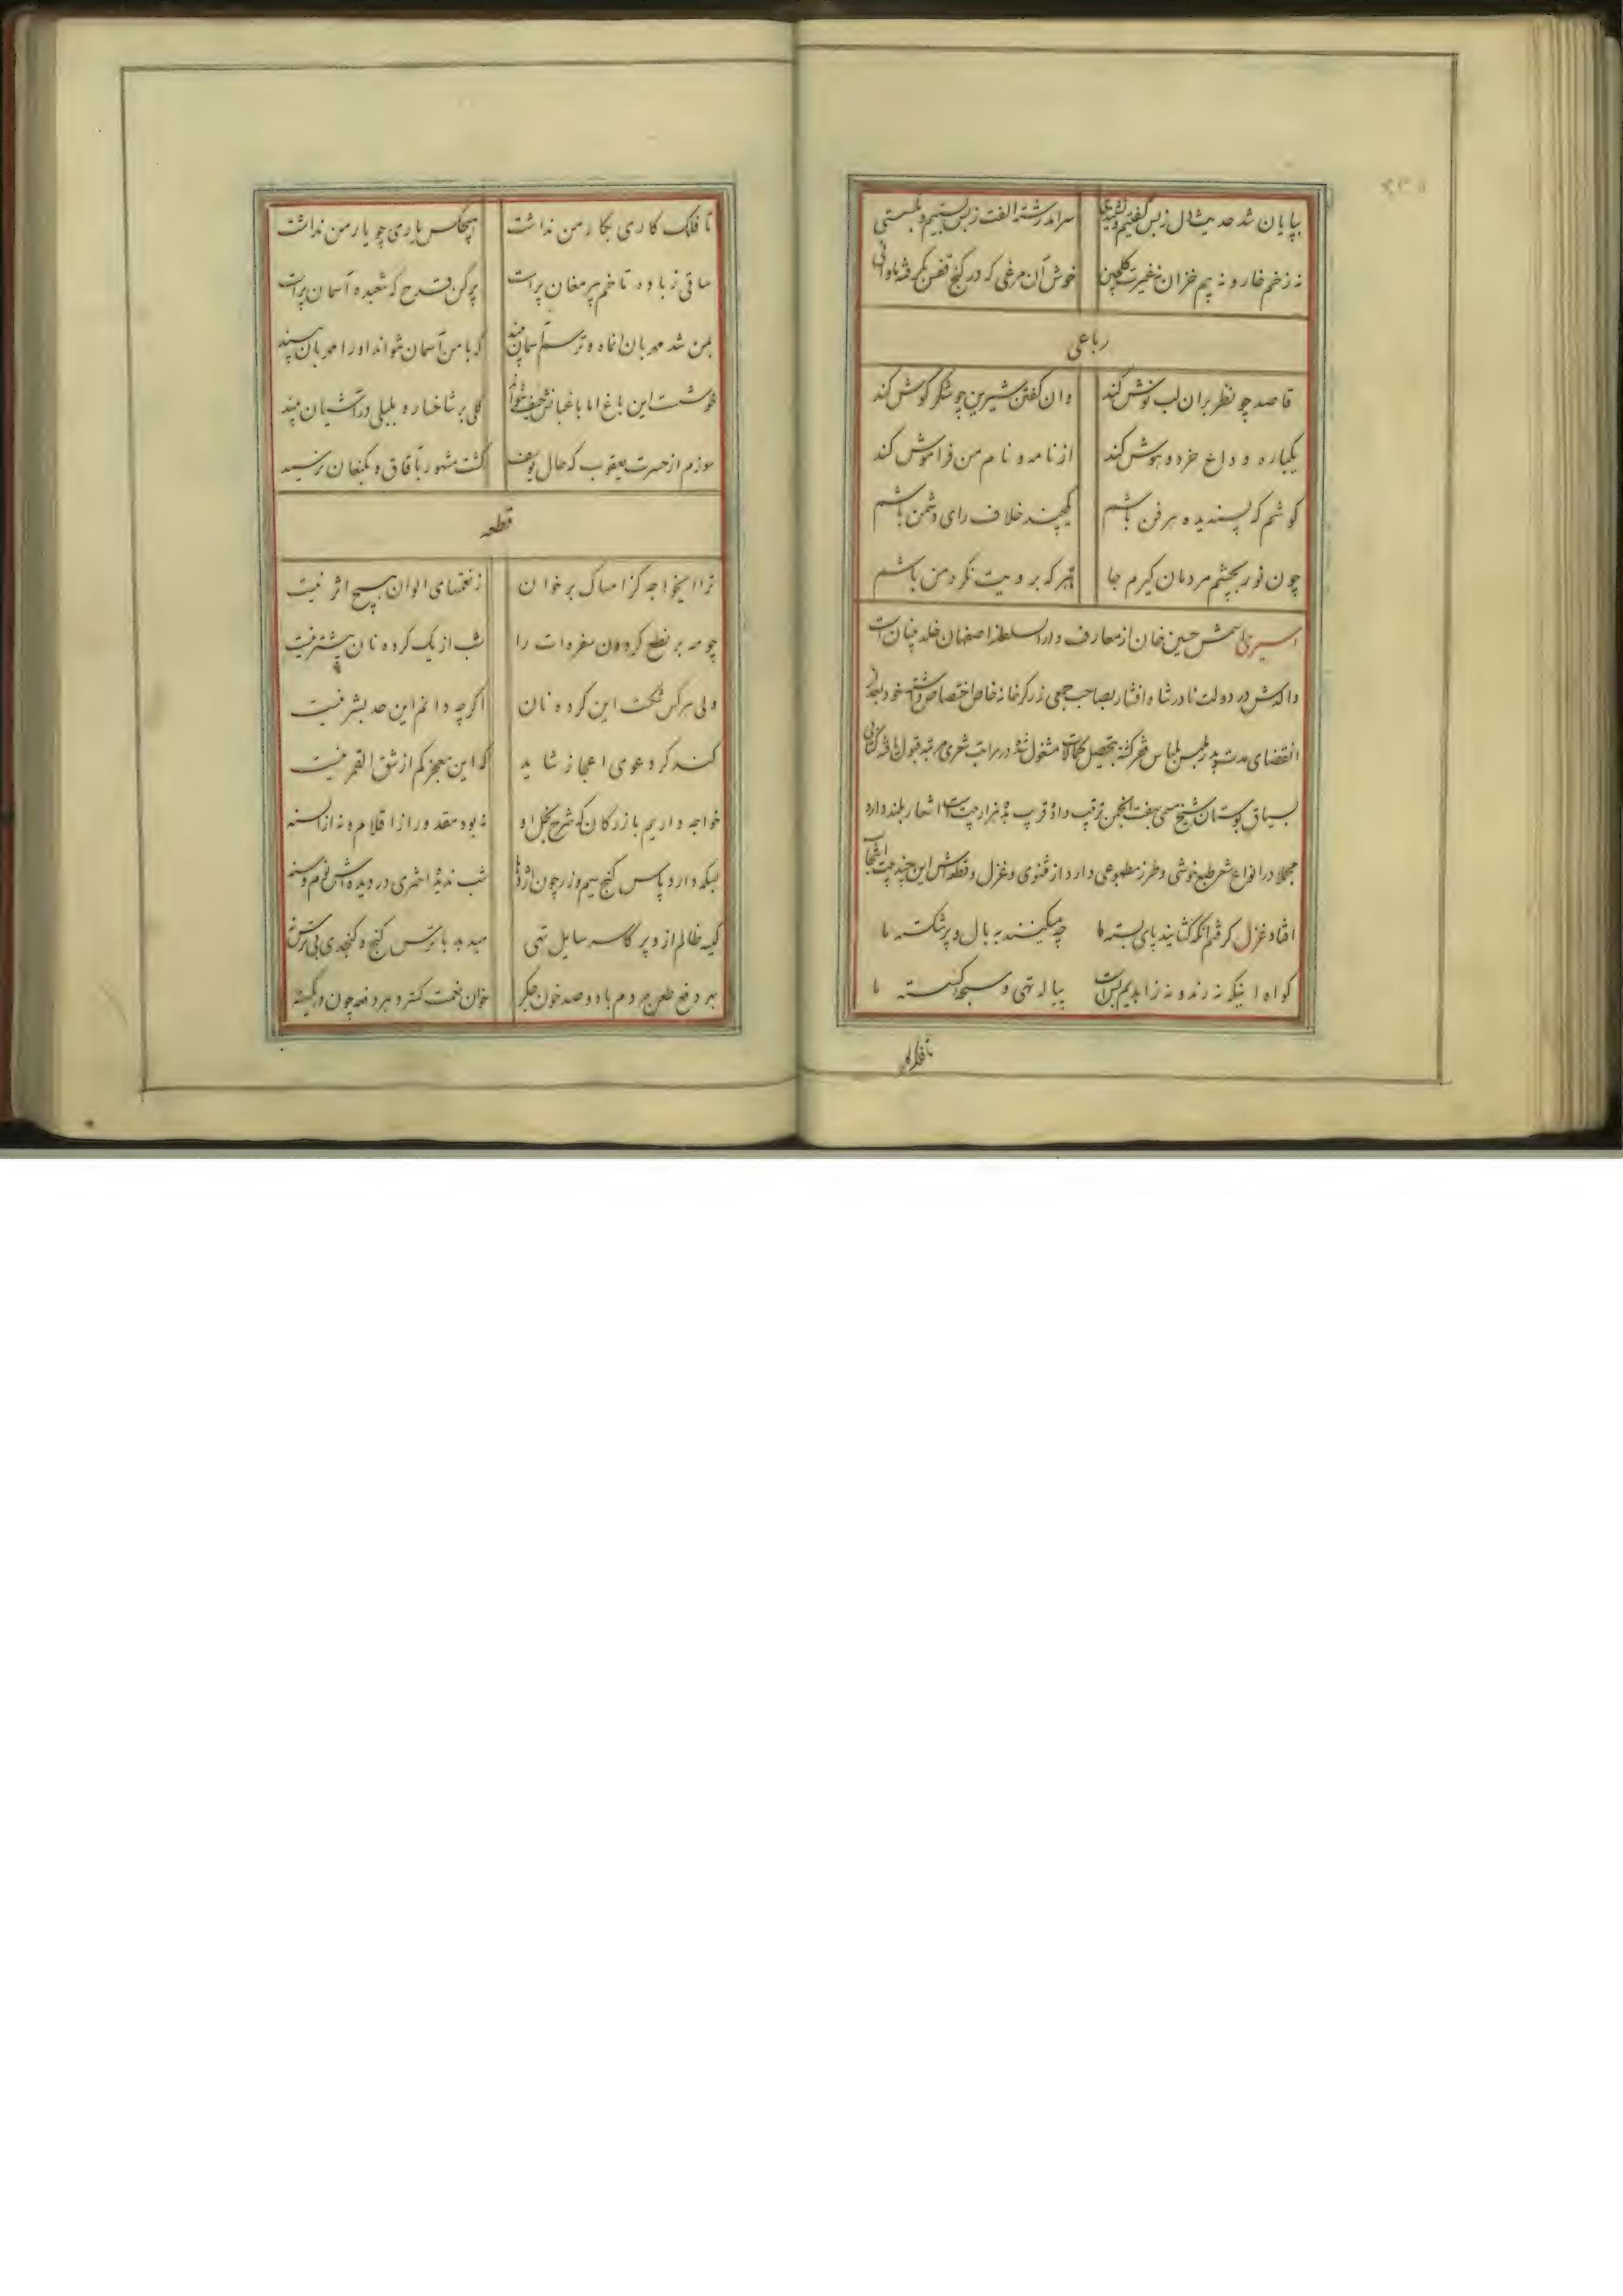 بپایان شد حدیث دل ز بس گفتیم و نشنیدی سرآمد رشته الفت ز بس بستیم و بگسستی
نه زخم خار و نه بیم خزان نه غیرت گلچین خوش آن مرغی که در کنج قفس بگرفته ماوائی
رباعی
قاصد چو نظر بران لب نوش کند وان گفتن شیرین چو شکر گوش کند
یکباره وداع خرد و هوش کند از نامه و نام من فراموش کند
کوشم که پسندیده هر فن باشم یکچند خلاف رای دشمن باشم
چون نور بچشم مردمان گیرم جا تا هر که برویت نگرد من باشم
اسیری اسمش حسین خان از معارف دار السلطنه اصفهان خلد بنیان است
والدش در دولت نادرشاه افشار بصاحب جمعی زرگرخانه خاص اختصاص داشته خود بعد از
انقضای مدت پدر بلباس فقر گشته بتحصیل کمالات مشغول شده در مراتب شعری مرتبه قبول یافته کتابی
بسیاق بوستان شیخ مسمی بهفت انجمن ترتیب داده قریب به هزار بیت است اشعار بلند دارد
مجملا در انواع شعر طبع خوشی و طرز مطبوعی دارد از مثنوی و غزل و قطعه اش این چند بیت انتخاب
افتاد غزل گرفتم آنکه گشایند پای بسته ما چه میکنند به بال و پر شکسته ما
گواه اینکه نه رند و نه زاهدیم بس است پیاله تهی و سبحه گسسته ما
تا فلک
تا فلک کاری بکار من نداشت هیچکس یاری چو یار من نداشت
ساقی ز باده تا خم پیر مغان پر است پر کن قدح که شعبده آسمان پر است
بمن شد مهربان آن ماه و ترسم آسمان بیند که با من آسمان نتواند او را مهربان بیند
خوشست این باغ اما باغبانش حیف نتواند گلی بر شاخسار و بلبلی در آشیان بیند
سوزم از حسرت یعقوب که حال یوسف گشت مشهور بآفاق و بکنعان نرسید
قطعه
ترا ایخواجه کز امساک بر خوان ز نعمتهای الوان هیچ اثر نیست
چو مه بر نطع گردون سفره ات را شب از یک گرده نان بیشتر نیست
ولی هر کس شکست این گرده نان اگرچه دانم این حد بشر نیست
کند گر دعوی اعجاز شاید که این معجز کم از شق القمر نیست
خواجه داریم بازرگان که شرح بخل او نه بود مقدور از اقلام و نه از السنه
بسکه دارد پاس گنج سیم و زر چون اژدها شب ندیده اختری در دیده اش نوم و سنه
کیسه ظالم ازو پر کاسه سایل تهی میدهد با ترس گنج و کنجدی بی ترس نه
بهر دفع طعن مردم با دو صد خون جگر خوان نعمت گسترد هر دفعه چون در یکسنه